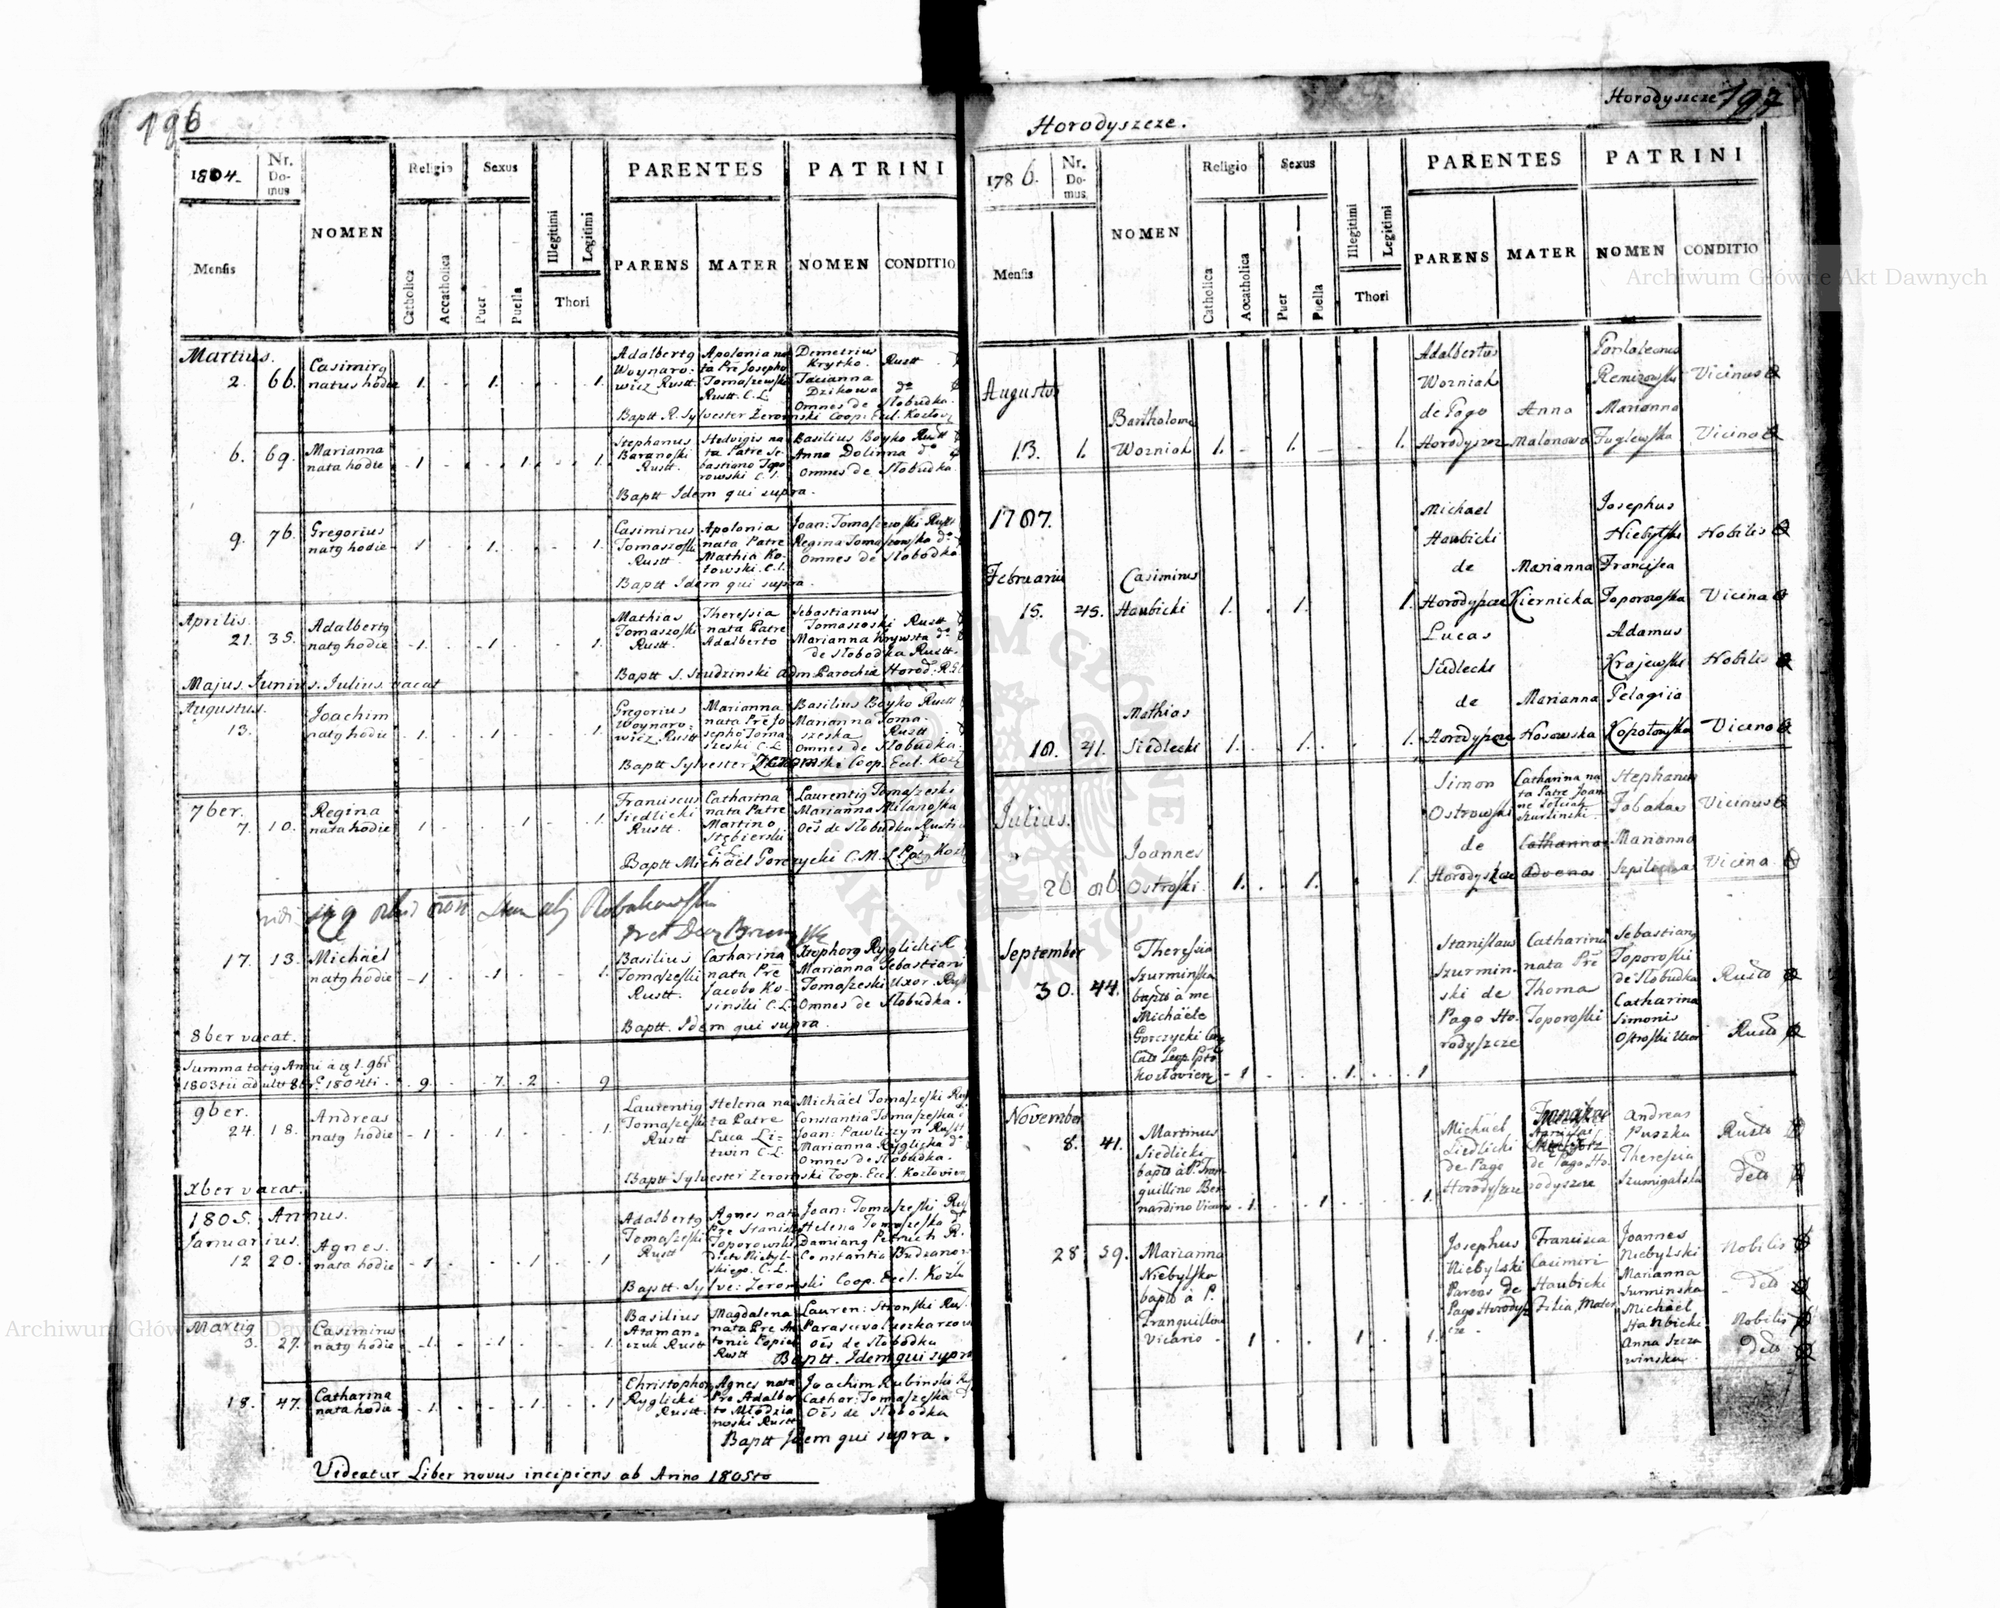 196
1804.
Nr. Domus
Mensis
NOMEN
Religio
Catholica
Accatholica
Sexus
Puer
Puella
Illegitimi
Legitimi
Thori
PARENTES
PARENS
MATER
PATRINI
NOMEN
CONDITIO
Martius.
2. 66. Casimirg natus hodie 1. 1. 1.
Adalbertg Woynarowicz Rustt.
Apolonia nata Pre Josepho Tomaszewski Rustt. C.L.
Demetrius Krytko. Rustt.
Dzikowa do
Omnes de Słobudka.
Baptt R. Sylvester Zeromski Coop. Eccl. Kozłov
6. 69. Marianna nata hodie 1 1. 1.
Stephanus Baranoski Rustt.
Hedvigis nata Patre Sebastiano Toporowski C.L.
Basilius Boyko Rustt
Anna Dolinna do
Omnes de Słobudka.
Baptt Idem qui supra.
9. 76. Gregorius natg hodie 1 1. 1.
Casimirus Tomaszoski Rustt.
Apolonia nata Patre Mathia Kotowski. C.L.
Joan: Tomaszewski Rustt
Regina Tomaszewska do
Omnes de Słobodka
Baptt Idem qui supra.
Aprilis.
21. 35. Adalbertg natg hodie 1. 1. 1.
Mathias Tomaszoski Rustt.
Theressia nata Patre Adalberto
Sebastianus Tomaszoski Rustt
Marianna Krywsta do
de Słobodka Rustt.
Baptt S. Studzinski Adm Parochia Horod. R.
Majus. Junius. Julius. vacat
Augustus.
13. Joachim natg hodie 1. 1. 1.
Gregorius Woynarowicz Rustt
Marianna nata Pre Josepho Tomaszeski C.L.
Basilius Boyko Rustt
Marianna Tomaszeska Rustt.
Omnes de Słobudka.
Baptt Sylvester Zeromski Coop. Eccl. Kozł
7ber.
7. 10. Regina nata hodie 1 1 1.
Franciscus Siedlicki Rustt.
Catharina nata Patre Martino Stębierski C.L.
Laurentig Tomaszeski
Marianna Milanoska
Oēs de Słobudka Rustt
Baptt Michael Gorczycki C.M.
17. 13. Michael natg hodie 1 1 1.
Basilius Tomaszeski Rustt.
Catharina nata Pre Jacobo Kosinski C.L.
Stephorg Ryglicki R
Marianna Sebastiani Tomaszeski Uxor. Rus
Omnes de Słobudka.
Baptt. Idem qui supra.
8ber vacat.
Summa totig Anni a 1. 9bris
1803tii ad ult 8b 1804ti. 9. 7. 2 9
9ber.
24. 18. Andreas natg hodie 1 1. 1.
Laurentig Tomaszeski Rustt
Helena nata Patre Luca Litwin C.L.
Michael Tomaszeski Rus
Constantia Tomaszeska
Joan: Pawliszyn Rustt
Marianna Ryglicka do
Omnes de Słobudka.
Baptt Sylvester Zeromski Coop. Eccl. Kozłovien
Xber vacat.
1805. Annus.
Januarius.
12 20. Agnes. nata hodie 1 1 1
Adalbertg Tomaszeski Rustt
Agnes nata Pre Stanisl Toporowski dicto Niebylskiego. C.L.
Joan: Tomaszeski Rus
Helena Tomaszeska
Damiang Petruch R.
Constantia Budzanow
Baptt. Sylve: Zeromski Coop. Eccl. Kozło
Martig
3. 27. Casimirus natg hodie 1. 1 1.
Basilius Atamanczuk Rustt
Magdalena nata Pre Antonio Popiel Rustt
Lauren: Stronski Rus.
Parasceva Puszkarzow
oēs de Słobódka
Baptt. Idem qui supra
18. 47. Catharina nata hodie 1. 1. 1
Christophor Ryglicki Rustt.
Agnes nata Pre Adalberto Młodzianowski Rustt
Joachim Rubinski
Cathar: Tomaszeska
Oēs de Słobódka
Baptt Idem qui supra.
Videatur Liber novus incipiens ab Anno 1805to
Horodyszcze 197
Horodyszcze.
1786.
Nr. Domus
Mensis
NOMEN
Religio
Catholica
Accatholica
Sexus
Puer
Puella
Illegitimi
Legitimi
Thori
PARENTES
PARENS
MATER
PATRINI
NOMEN
CONDITIO
Augustus
13. 1. Bartholome Wozniak 1. 1. 1.
Adalbertus Wozniak de Pago Horodyszcz
Anna Malonowa
Pantaleonus Remizowski Vicinus
Marianna Fuglewska Vicina
1787.
Februarius
15. 45. Casimirus Haubicki 1. 1. 1.
Michael Haubicki de Horodyszcze
Marianna Kiernicka
Josephus Niebylski Nobilis
Francisca Toporowska Vicina
18. 41. Mathias Siedlecki 1. 1. 1.
Lucas Siedlecki de Horodyszcze
Marianna Nosowska
Adamus Krajewski Nobilis
Pelagiia Kopotowska Vicina
Julius.
26 86. Joannes Ostroski. 1. 1. 1.
Simon Ostrowski de Horodyszcze
Catharina nata Patre Joanne Szurlinski.
Stephanus Tobakar Vicinus
Marianna Vicina
September
30. 44. Theressia Szurminska bapto à me Michaele Gorczycki 1 1. 1
Stanislaus Szurminski de Pago Horodyszcze
Catharina nata Pre Thoma Toporoski
Sebastiang Toporoski de Słobudka Rusto
Catharina Simonis Ostroski Uxor Rusto
November
8. 41. Martinus Siedlicki bapto à P. Tranquillino Bernardino Vicario 1. 1 1.
Michael Siedlicki de Pago Horodyszcze
de Pago Horodyszcze
Andreas Puszka Rusto
Theressia Szumigalska deto
28 59. Marianna Niebylska bapto à P. Tranquillino Vicario 1 1 1.
Josephus Niebylski Parens de Pago Horodyszcze.
Francisca Casimiri Haubicki Filia, Mater
Joannes Niebylski Nobilis
Marianna Surminska deto
Michael Haubicki Nobilis
Anna Szczawinska. deto
Archiwum Główne Akt Dawnych
Archiwum Główne Akt Dawnych